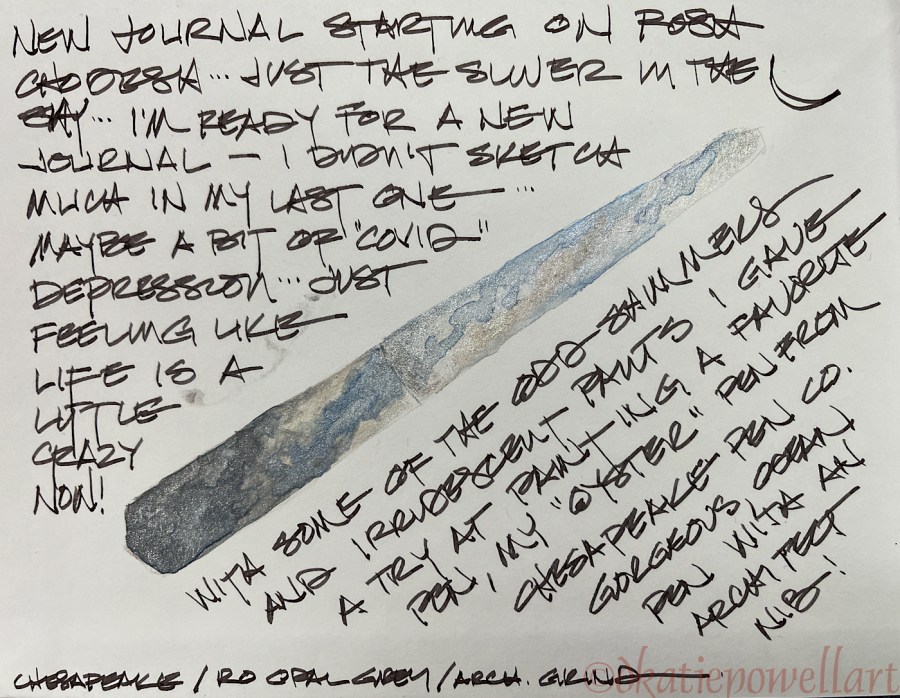 NEW JOURNAL STARTING ON ROSA
CHODESH... JUST THE SLIVER IN THE
SKY... I'M READY FOR A NEW
JOURNAL — I DIDN'T SKETCH
MUCH IN MY LAST ONE ...
MAYBE A BIT OF "COVID"
DEPRESSION... JUST
FEELING LIKE
LIFE IS A
LITTLE
CRAZY
NOW!
WITH SOME OF THE ODD SHIMMERS
AND IRRIDESCENT PAINTS I GAVE
A TRY AT PAINTING A FAVORITE
PEN, MY "OYSTER" PEN FROM
CHESAPEAKE PEN CO.
GORGEOUS OCEAN
PEN WITH AN
ARCHITECT
NIB!
CHESAPEAKE / RO OPAL GREY / ARCH. GRIND
©dkatiepowellart